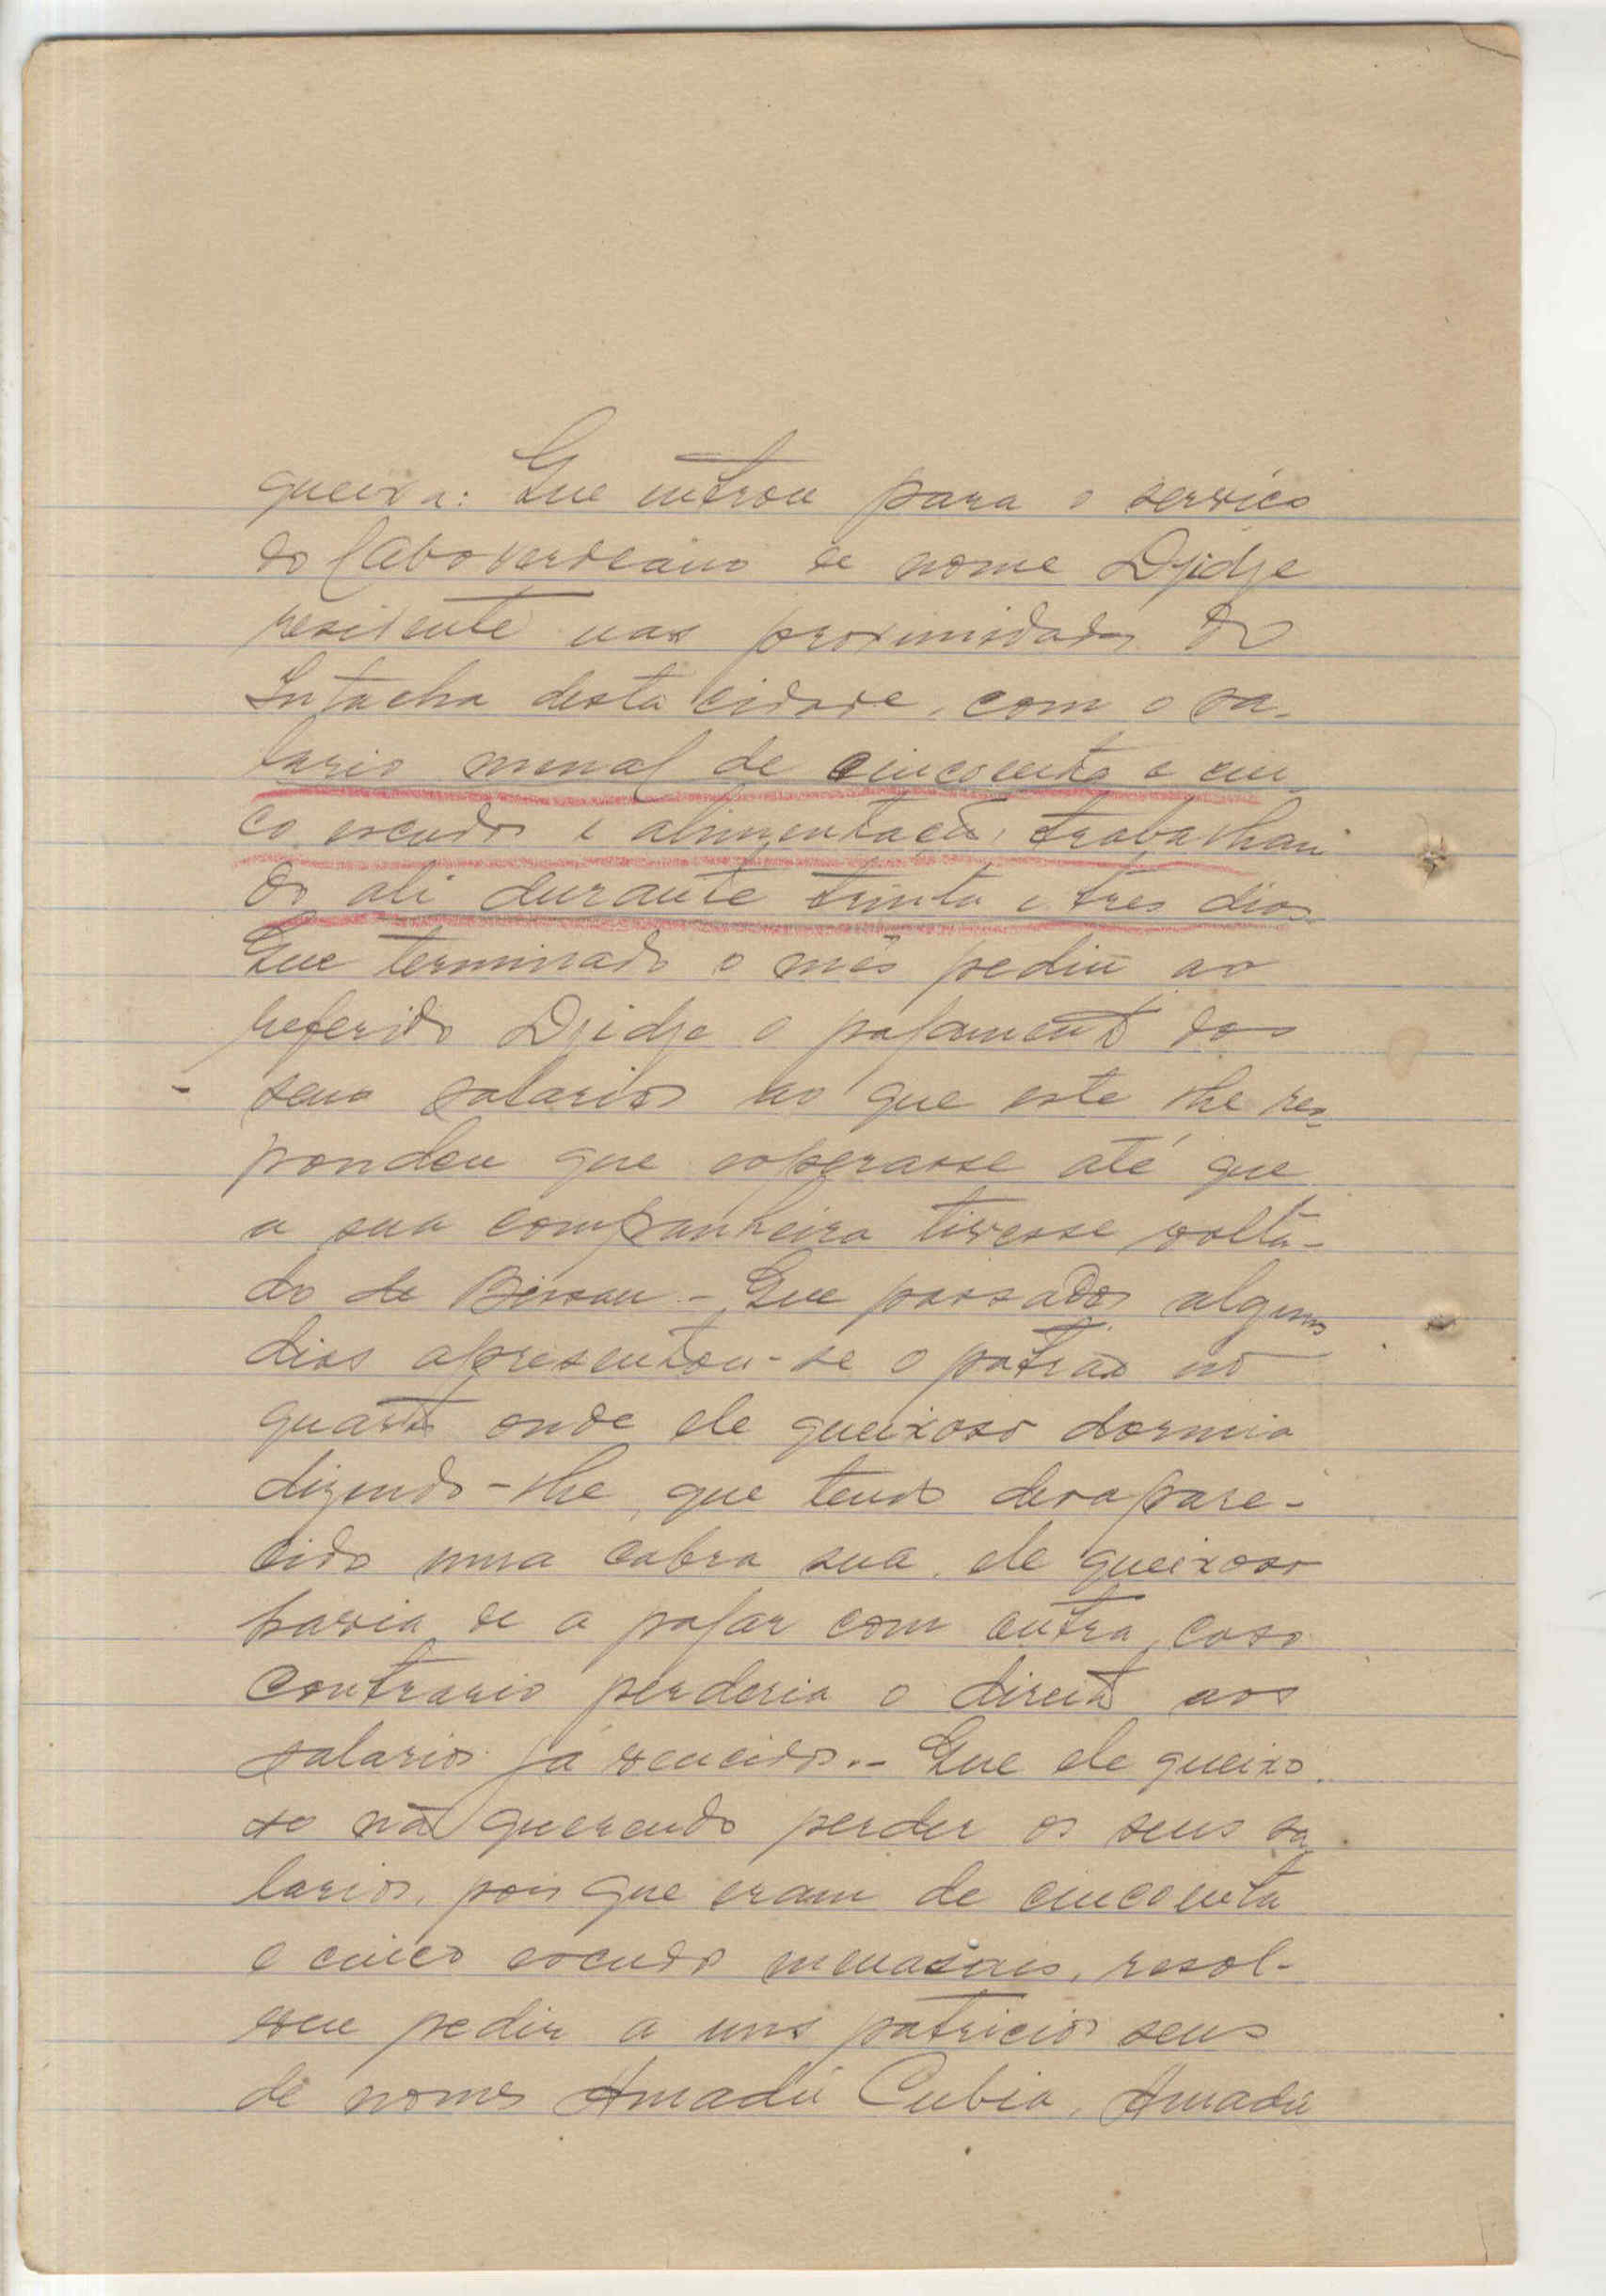 queixa: Que entrou para o serviço
do Caboverdeano de nome Djidje
residente nas proximidades do
Intacha desta cidade, com o sa-
lario mensal de cincoenta e cin-
co escudos e alimentação, trabalhan
do ali durante trinta e tres dias.
Que terminado o mês pediu ao
referido Djidje o pagamento dos
seus salarios ao que este lhe res-
pondeu que esperasse até que
a sua companheira tivesse volta-
do de Bissau - Que passados alguns
dias apresentou-se o patrão no
quarto onde ele queixoso dormia
dizendo-lhe, que tendo desapare-
cido uma cabra sua, ele queixoso
havia de a pagar com outra, caso
contrario perderia o direito aos
salarios já vencidos.- Que ele queixo
so não querendo perder os seus sa
larios, pois que eram de cincoenta
e cinco escudos mensais, resol-
veu pedir a uns patricios seus
de nomes Amadú Cubia, Amadú